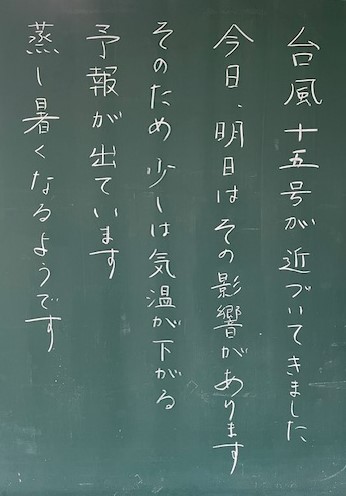 台風十五号が近づいてきました
今日、明日はその影響があります
そのため少しは気温が下がる
予報が出ています
蒸し暑くなるようです